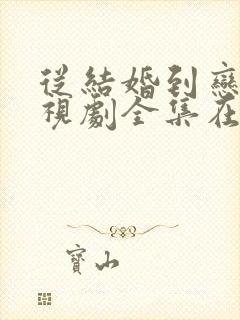 從結婚到戀
視劇全集在
寶山